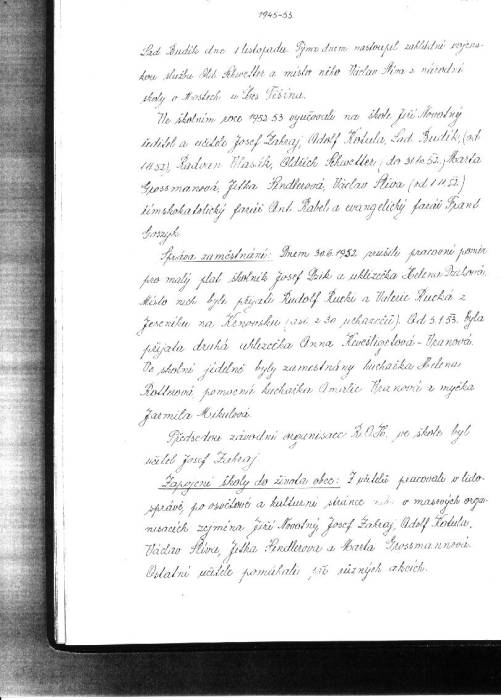 1945-53
Lad. Budík dne 1 listopadu. Týmž dnem nastoupil základní vojens-
kou službu Old. Schwetter a místo něho Václav Slíva z národní
školy v Hostech u Čes Těšína.
Ve školním roce 1952 53 vyučovali na škole Jiří Novotný
ředitel a učitelé Josef Zahraj, Adolf Kotula, Lad. Budík, (od
1 11 52), Radvan Vlasík, Oldřich Schwetter, (do 31 10 52,) Marta
Grossmanová, Jitka Kindlerová, Václav Slíva (od 1 11 52)
římskokatolický farář Ant. Rabel a evangelický farář Frant
Správa zaměstnání: Dnem 30 6 1952 zrušili pracovní poměr
pro malý plat školník Josef Dzik a uklízečka Helena
Místo nich byli přijati Rudolf Rucki a Valerie Rucká z
Jeseníku na Krnovsku (asi z 30 uchazečů). Od 5 1 53. byla
přijata druhá uklízečka Anna Vranová.
Ve školní jídelně byly zaměstnány kuchařka Helena
Rottrová pomocná kuchařka Amalie Vranová a myčka
Jarmila Mikulová.
Předsedou závodní organisace R.O.H. ve škole byl
učitel Josef Zahraj
Zapojení školy do života obce: I učitelé pracovali v lido-
správě, po osvětové a kulturní stránce v masových orga-
nisacích, zejména Jiří Novotný Josef Zahraj, Adolf Kotula,
Václav Slíva, Jitka Kindlerova a Marta Grossmannová.
Ostatní učitelé pomáhali při různých akcích.